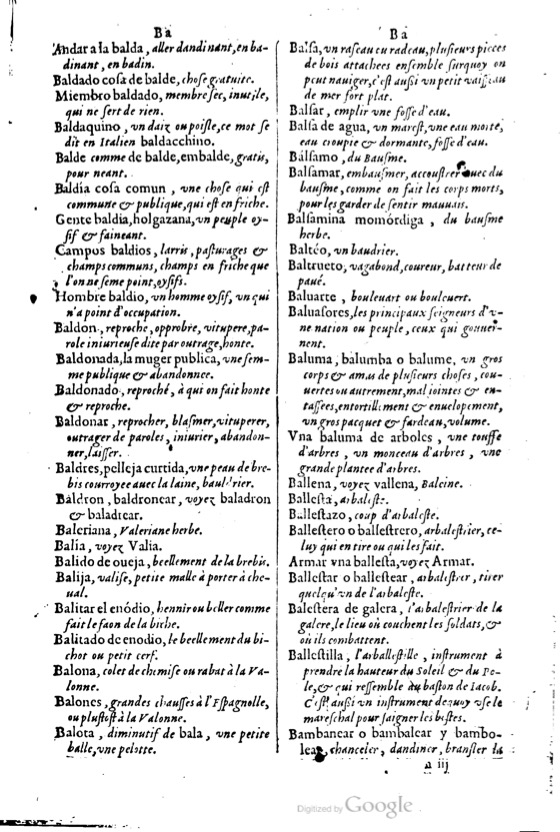 Ba
Andar a la balda, aller dandinant, en ba-
dinant, en badin.
Baldado cosa de balde, chose gratuite.
Miembro baldado, membre sec, inutile,
qui ne sert de rien.
Baldaquino, vn daiz ou poisle, ce mot se
dit en Italien baldacchino.
Balde comme de balde, embalde, gratis,
pour neant.
Baldia cosa comun, vne chose qui est
commune & publique, qui est en friche.
Gente baldia, holgazana, vn peuple oy-
sif & faineant.
Campos baldios, larris, pasturages &
champs communs, champs en friche que
l'on ne seme point, oysifs.
Hombre baldio, vn homme oysif, vn qui
n'a point d'occupation.
Baldon, reproche, opprobre, vitupere, pa-
role iniurieuse dite par outrage, honte.
Baldonada, la muger publica, vne fem-
me publique & abandonnee.
Baldonado, reproché, à qui on fait honte
& reproche.
Baldonar, reprocher, blasmer, vituperer,
outrager de paroles, iniurier, abandon-
ner, laisser.
Baldres, pelleja curtida, vne peau de bre-
bis courroyee auec la laine, baudrier.
Baldron, baldronear, voyez baladron
& baladrear.
Baleriana, Valeriane herbe.
Balia, voyez Valia.
Balido de oueja, beellement de la brebis.
Balija, valise, petite malle à porter à che-
ual.
Balitar el enodio, hennir ou beller comme
fait le faon de la biche.
Balitado de enodio, le beellement du bi-
chot ou petit cerf.
Balona, colet de chemise ou rabat à la Va-
lonne.
Balones, grandes chausses à l'Espagnolle,
ou plustost à la Valonne.
Balota, diminutif de bala, vne petite
balle, vne pelotte.
Ba
Balsa, vn raseau ou radeau, plusieurs pieces
de bois attachees ensemble surquoy on
peut nauiger, c'est aussi vn petit vaisseau
de mer fort plat.
Balsar, emplir vne fosse d'eau.
Balsa de agua, vn marest, vne eau morte,
eau croupie & dormante, fosse d'eau.
Balsamo, du Bausme.
Balsamar, embausmer, accoustrer auec du
bausme, comme on fait les corps morts,
pour les garder de sentir mauuais.
Balsamina momórdiga, du bausme
herbe.
Baltéo, vn baudrier.
Baltrueto, vagabond, coureur, batteur de
paué.
Baluarte, bouleuart ou bouleuert.
Baluasores, les principaux seigneurs d'v-
ne nation ou peuple, ceux qui gouuer-
nent.
Baluma, balumba o balume, vn gros
corps & amas de plusieurs choses, cou-
uertes ou autrement, mal jointes & en-
tassées, entortillement & enuelopement,
vn gros pacquet & fardeau, volume.
Vna baluma de arboles, vne touffe
d'arbres, vn monceau d'arbres, vne
grande plantee d'arbres.
Ballena, voyez vallena, Baleine.
Ballesta, arbaleste.
Ballestazo, coup d'arbaleste.
Ballestero o ballestrero, arbalestrier, ce-
luy qui en tire ou qui les fait.
Armar vna ballesta, voyez Armar.
Ballestar o ballestear, arbalestrer, tirer
quelqu'vn de l'arbaleste.
Balestera de galera, l'arbalestrier de la
galere, le lieu où couchent les soldats, &
où ils combattent.
Ballestilla, l'arballestille, instrument à
prendre la hauteur du Soleil & du Po-
le, & qui ressemble au baston de Iacob.
C'est aussi vn instrument dequoy vse le
mareschal pour saigner les bestes.
Bambancar o bambalear y bambo-
lear, chanceler, dandiner, bransler la
a iij
Digitized by Google